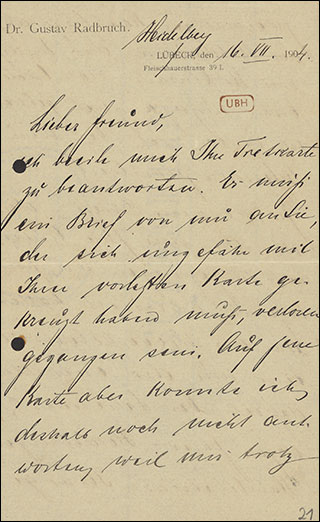 Dr. Gustav Radbruch.
Heidelberg
LÜBECK, den 16. VII. 1904.
Fleischhauerstrasse 39 I.
UBH
Lieber Freund,
ich beeile mich Ihre Tretkarte
zu beantworten. Es muß
ein Brief von mir an Sie,
der sich ungefähr mit
Ihrer vorletzten Karte ge-
kreuzt haben muß, verloren
gegangen sein. Auf jene
Karte aber konnte ich
deshalb noch nicht ant-
worten, weil mir trotz
21